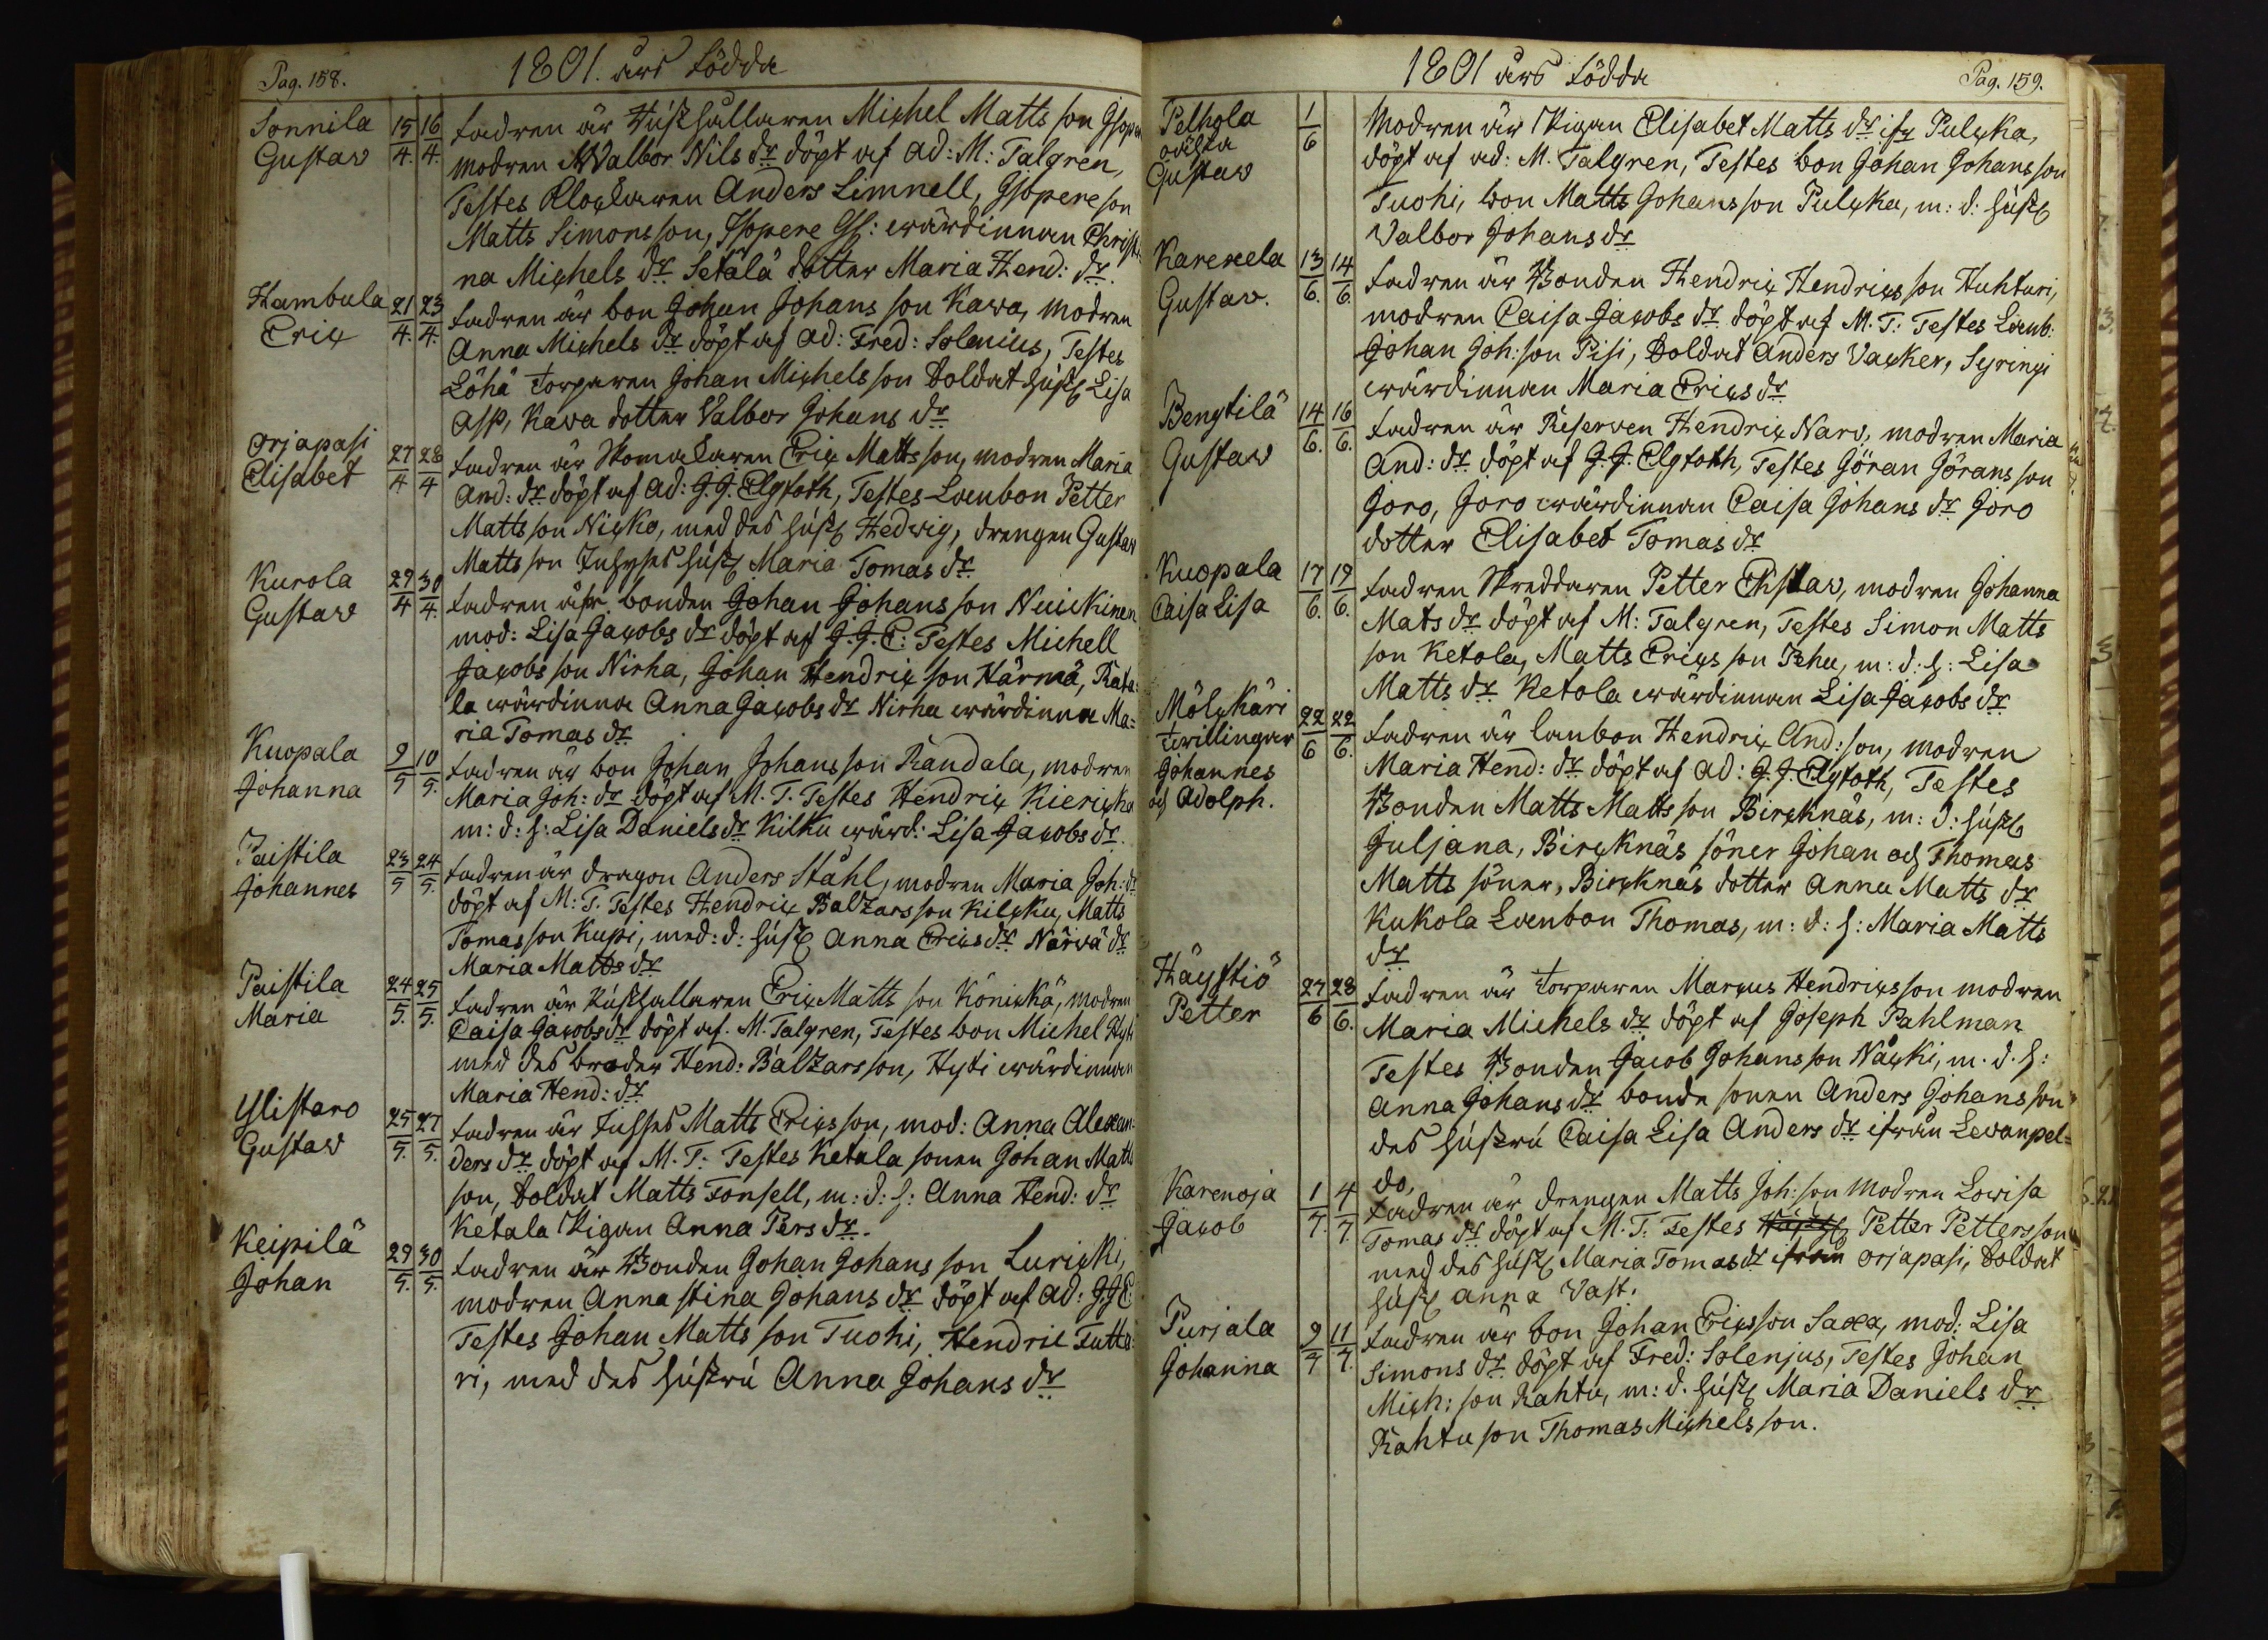 Pag. 158.
1801. års Födda
Sonnila 15/4. 16/4. Fadren är Husshållaren Michel Matts son
Gustav modren Walbor Nils dr döpt af Ad: M: Talgren,
Testes Klockaren Anders Limnell, Isopere son
Matts Simons son, Isopere Gl: wärdinnan Christi
na Michels dr. Setälä dotter Maria Hend: dr.
Hambula 21/4. 23/4. Fadren är bon Johan Johans son Kawa, modren
Eric Anna Michels dr döpt af Ad: Fred: Solenius, Testes
Löhä torparen Johan Michels son Soldat hust Lisa
Asp, Kawa dotter Valbor Johans dr
Orjapasi 27/4 28/4 Fadren är Skomakaren Eric Matts son, modren Maria
Elisabet And: dr döpt af Ad: J. J. Elgfoth, Testes Lanbon Petter
Matts son Nicko, med des hust Hedwig, drengen Gustav
Matts son hust Maria Tomas dr
Kurola 29/4 30/4. Fadren är bonden Johan Johans son Nuickinen
Gustav mod: Lisa Jacobs dr döpt af J. J. E: Testes Michell
Jacobs son Nirha, Johan Hendric son Härmä, Rata
la wärdinna Anna Jacobs dr Nirha wärdinna Ma=
ria Tomas dr
Kuopala 9/5 10/5. Fadren är bon Johan Johans son Randala, modren
Johanna Maria Joh: dr döpt af M. T. Testes Hendric Kiericka
m: d: h: Lisa Daniels dr Kilku wärd: Lisa Jacobs dr.
Paistila 23/5 24/5. Fadren är dragon Anders Ståhl, modren Maria Joh: dr
Johannes döpt af M: T. Testes Hendric Baltzars son Kilcku, Matts
Tomas son Kupi, med: d: hust Anna Erics dr Närvä dr
Maria Matts dr
Paistila 24/5. 25/5. Fadren är Rusthållaren Eric Matts son Könickä, modren
Maria Caisa Jacobs dr döpt af. M. Talgren, Testes bon Michel Hyti
med des broder Hend: Baltzars son, Hyti wärdinnan
Maria Hend: dr
Ylistaro 25/5. 27/5. Fadren är Inhses Matts Erics son, mod: Anna Alexan=
Gustav ders dr döpt af M. T: Testes Ketala sonen Johan Matts
son, Soldat Matts Fonsell, m: d: h: Anna Hend: dr
Ketala Pigan Anna Pers dr.
Keipilä 29/5. 30/5. Fadren är Bonden Johan Johans son Luricki,
Johan modren Anna Stina Johans dr döpt af Ad: J. J. E:
Testes Johan Matts son Tuohi, Hendric Tutta
ri, med des hustru Anna Johans dr
1801 års Födda
Pag. 159.
Pelhola 1/6 Modren är Pigan Elisabet Matts dr ifr Pulcka,
oäckta döpt af ad: M. Talgren, Testes bon Johan Johans son
Gustav Tuohi, bon Matts Johans son Pulcka, m: d: hust
Valbor Johans dr
Karexela 13/6. 14/6. Fadren är Bonden Hendric Hendrics son Huhturi,
Gustav. modren Caisa Jacobs dr döpt af M. T: Testes Lanb:
Johan Joh: son Pisi, Soldat Anders Vacker, Syringi
wärdinnan Maria Erics dr
Bengtilä 14/6. 16/6. Fadren är Reserven Hendric Narv, modren Maria
Gustav And: dr döpt af J. J. Elgfoth, Testes Göran Görans son
Joro, Joro wärdinnan Caisa Johans dr Joro
dotter Elisabet Tomas dr
Kuopala 17/6. 19/6. Fadren Skreddaren Petter Ekstav, modren Johanna
Caisa Lisa Mats dr döpt af M: Talgren, Testes Simon Matts
son Ketola, Matts Erics son Rhu, m: d: h: Lisa
Matts dr Ketola wärdinnan Lisa Jacobs dr
Mölckäri 22/6 22/6. Fadren är lanbon Hendric And: son, modren
twillingar Maria Hend: dr döpt af Ad: J. J. Elgfoth, Testes
Johannes Bonden Matts Matts son Bircknäs, m: d: hust
och Adolph. Juljana, Bircknäs söner Johan och Thomas
Matts söner, Bircknäs dotter Anna Matts dr
Kukola Lanbon Thomas, m: d: h: Maria Matts
dr
Häystiö 27/6 28/6. Fadren är Torparen Marcus Hendrics son modren
Petter Maria Michels dr döpt af Joseph Pahlman
Testes Bonden Jacob Johans son Näcki, m. d. h:
Anna Johans dr bonde sonen Anders Johans son
des hustru Caisa Lisa Anders dr ifrån Levanpel=
do,
Karenoja 1/7. 4/7. Fadren är drengen Matts Joh: son modren Lovisa
Jacob Tomas dr döpt af M. T: Testes Petter Petters son
med des hust Maria Tomas dr ifrån Orjapasi, Soldat
hust Anna Vast.
Purjala 9/7 11/7. Fadren är bon Johan Erics son Saxa, mod: Lisa
Johanna Simons dr döpt af Fred: Solenjus, Testes Johan
Mich: son Rahtu, m: d. hust Maria Daniels dr
Rahtu son Thomas Michels son.